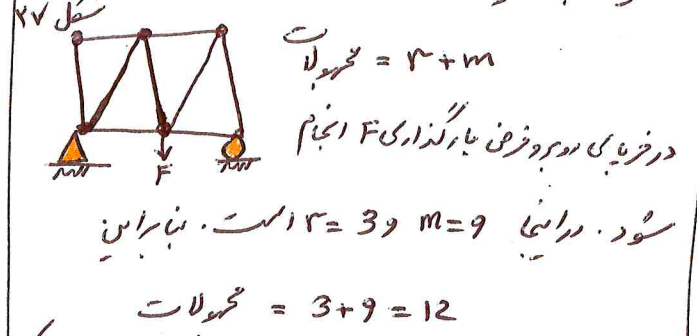 شکل ۲۷
مجهولات = r+m
F
در خرپای روبرو فرض بارگذاری F انجام
شود. در اینجا m=9 و r=3 است. بنابراین
مجهولات = 3+9=12